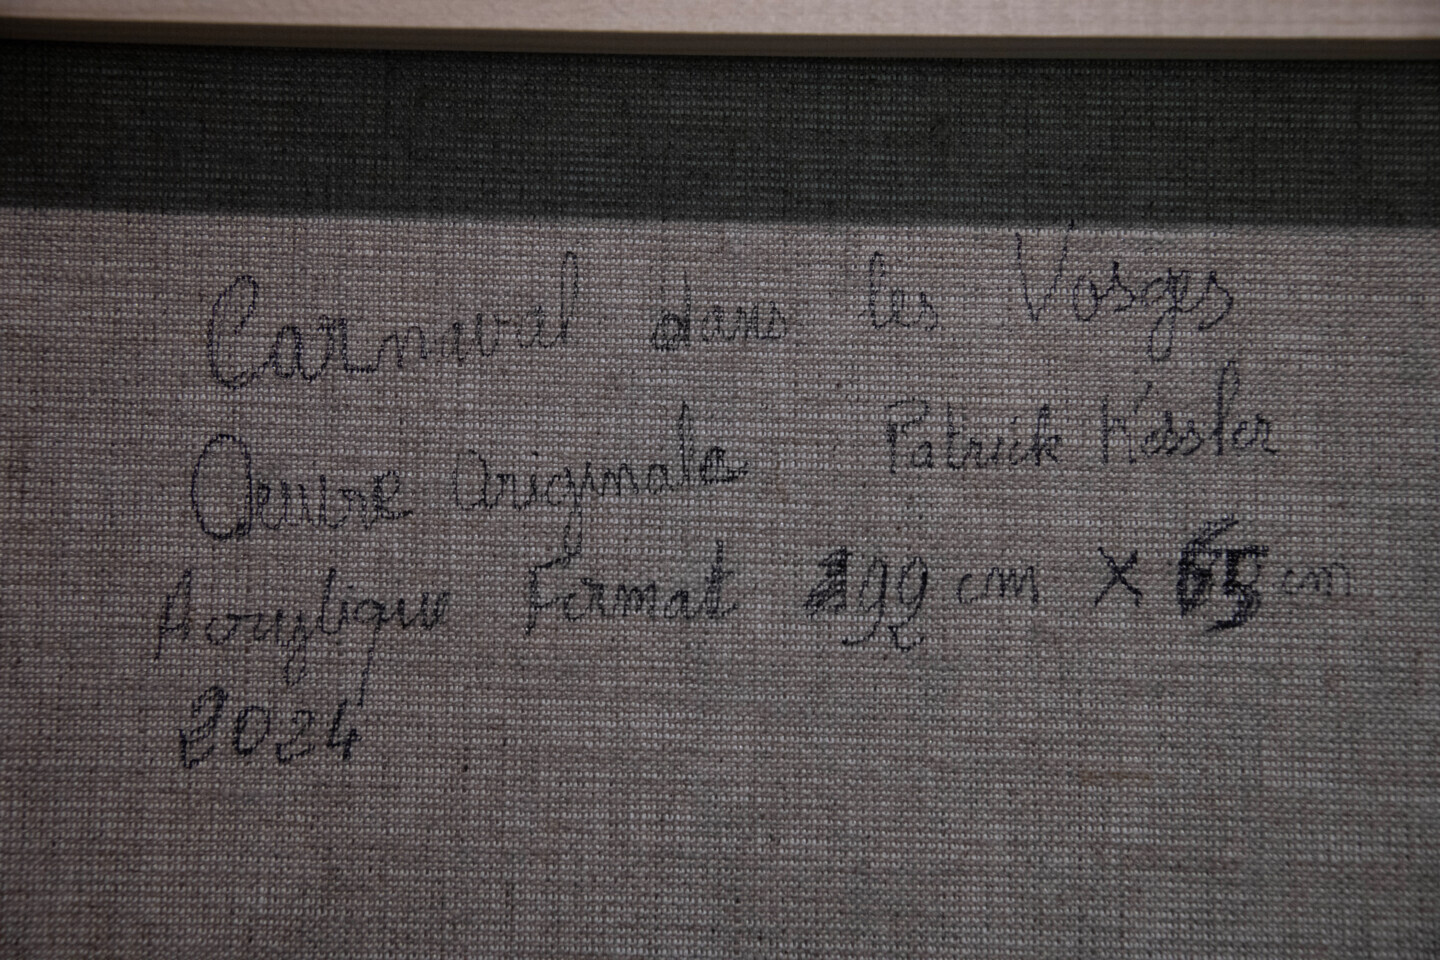 Carnaval dans les Vosges
Oeuvre Originale Patrick Kessler
Acrylique Format cm X 65 cm
2024